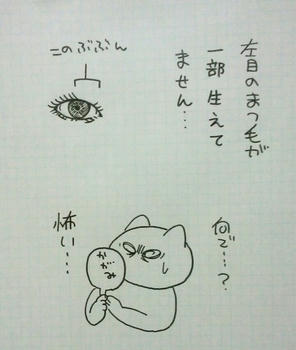 左目のまつ毛が
一部生えて
ません…
このぶぶん
何で…?
怖い…
かがみ